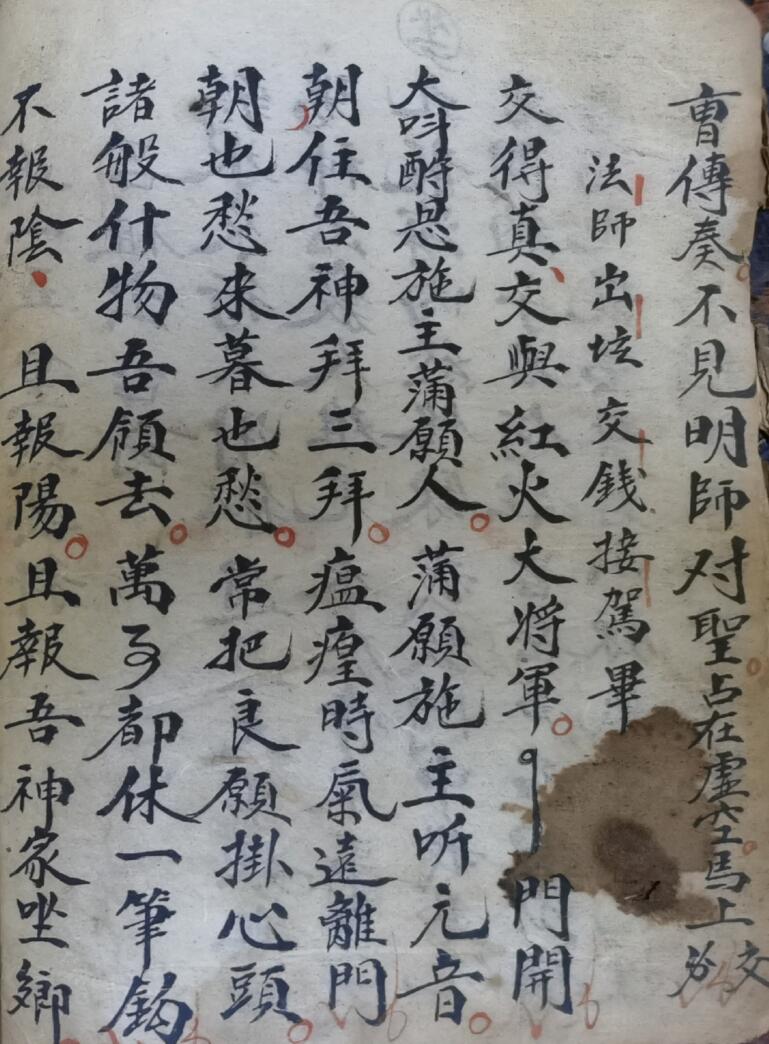 曺傳奏不見明師对聖占在虛空馬上交
法師出坛交錢接駕畢
交得真交與紅火大將軍 門開
大呌酧恩施主蒲願人 蒲願施主听元音
朝住吾神拜三拜瘟瘽時氣遠離門
朝也愁来暮也愁常把良願掛心頭
諸般什物吾領去萬事都休一筆鈎
不報陰且報陽且報吾神家坐鄉